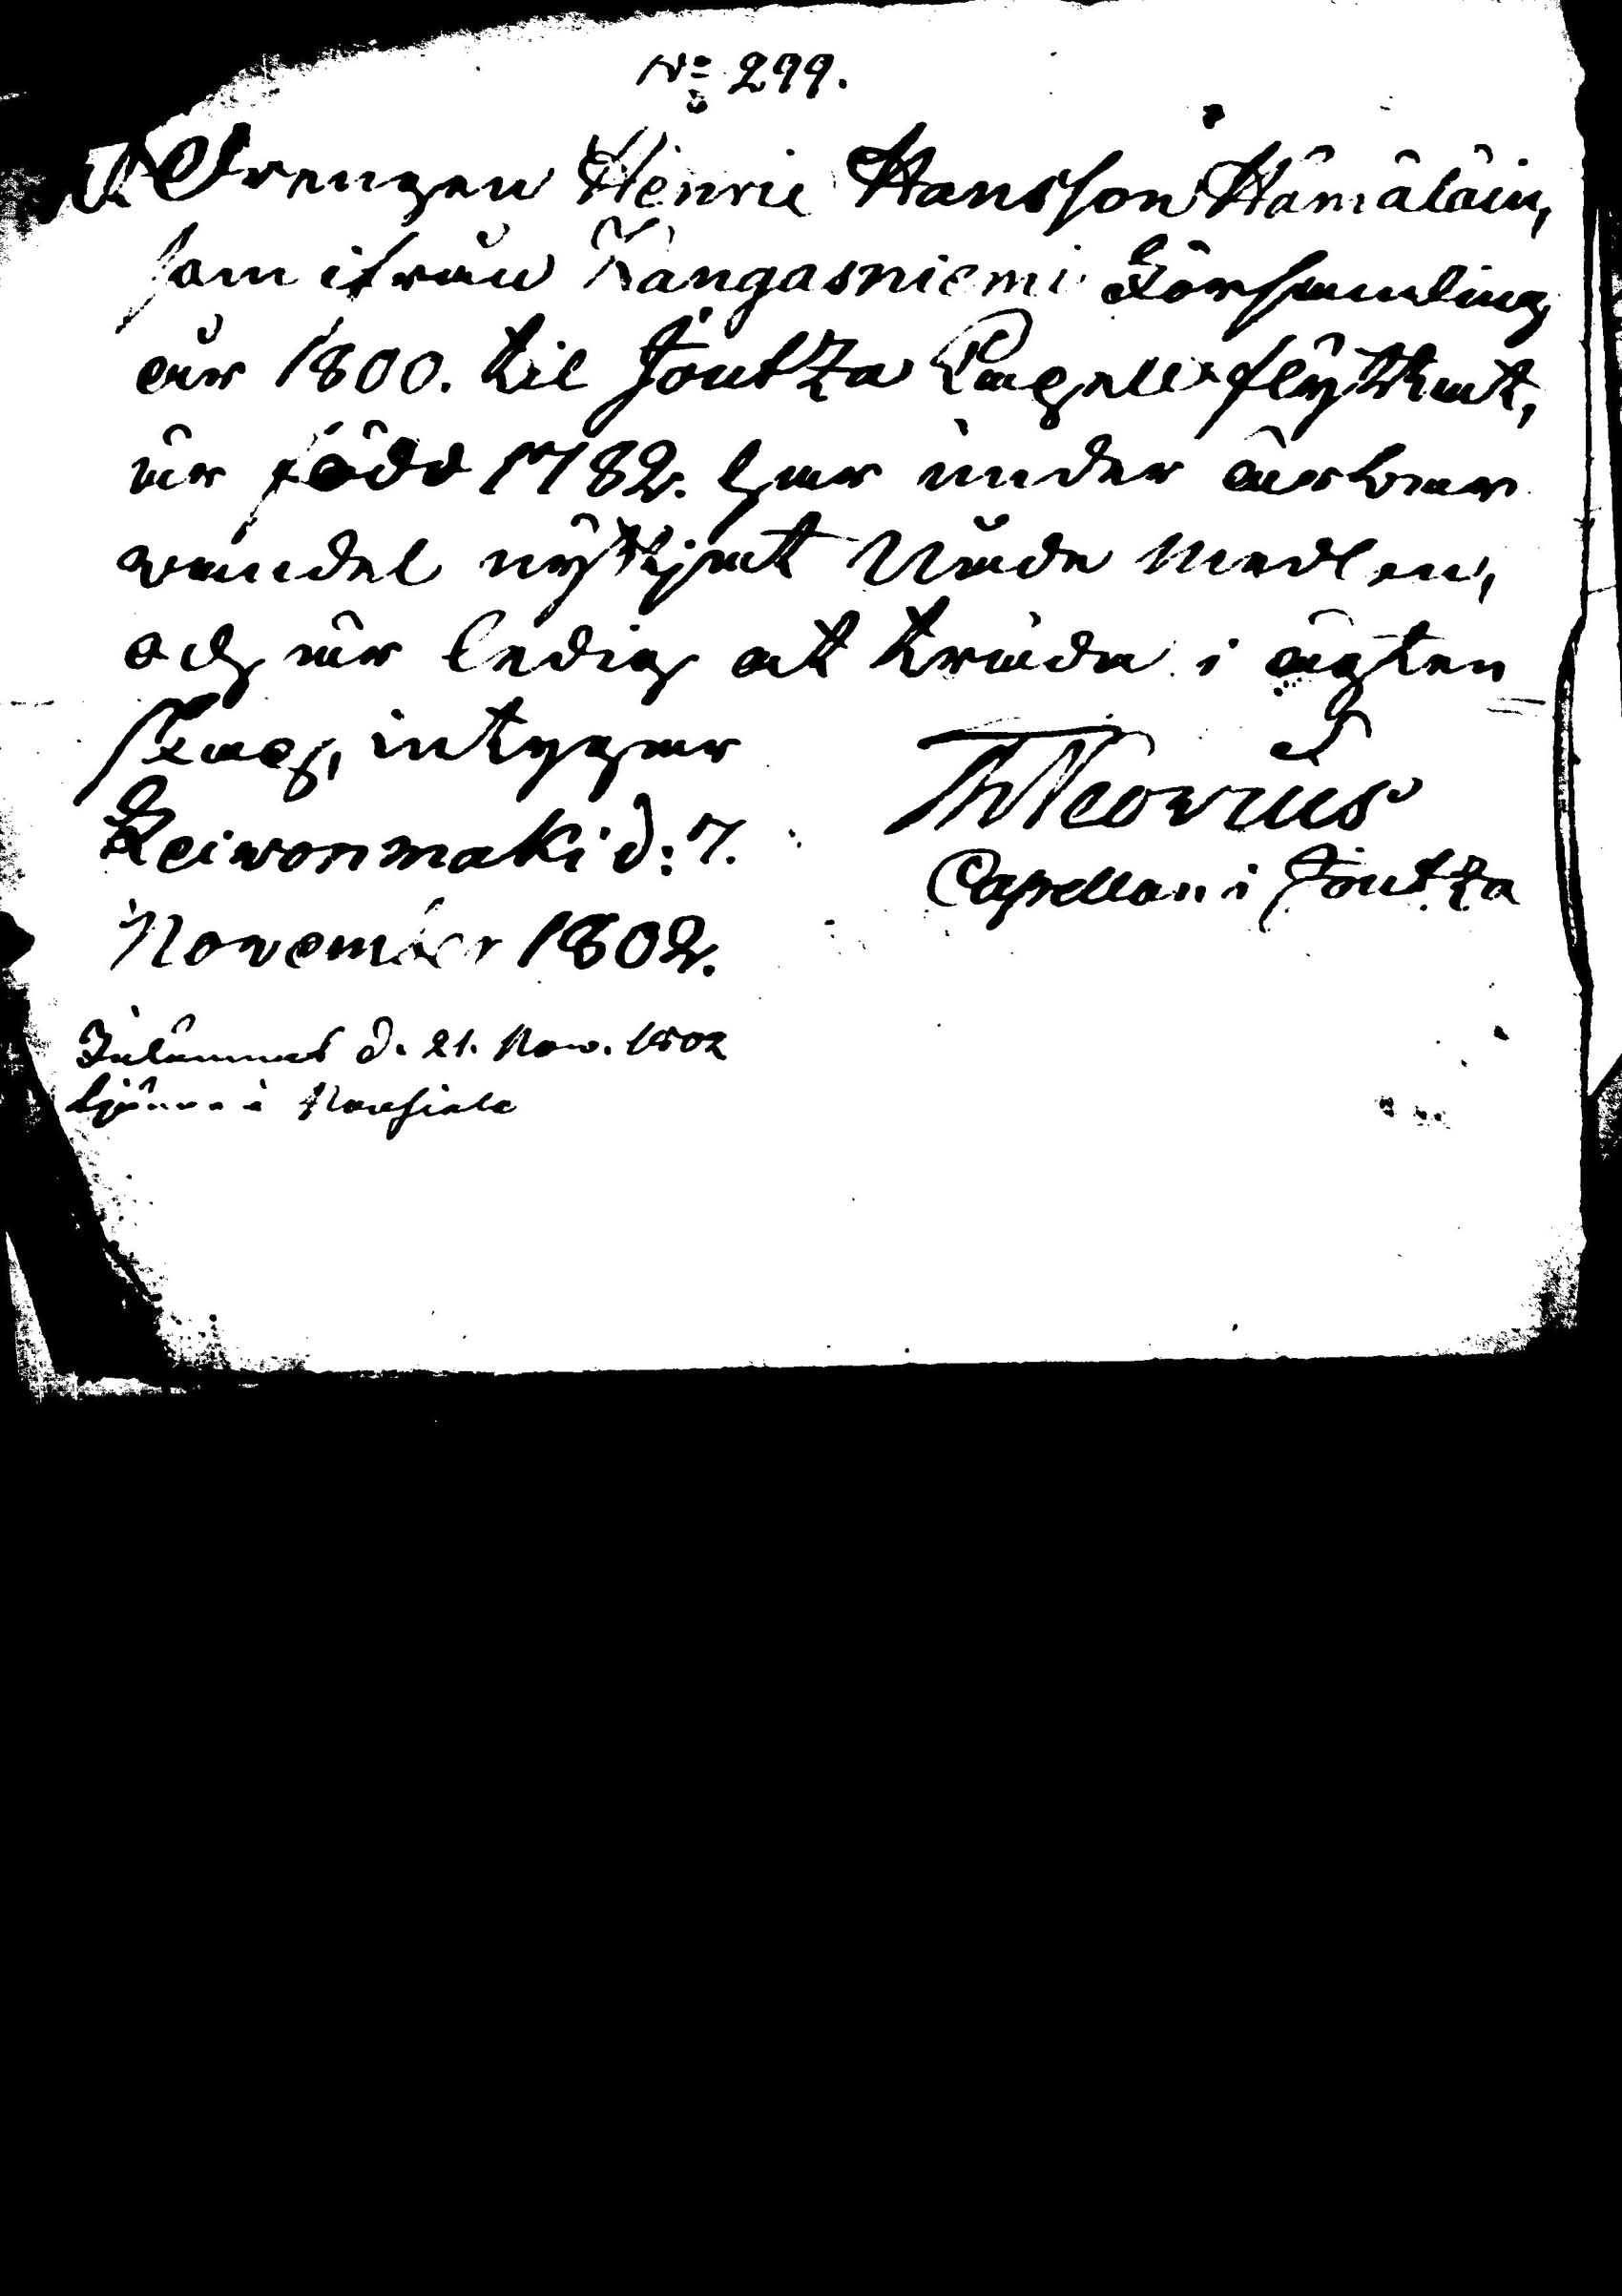 No 299.
Drengen Henric Hansson Hämäläin,
som ifrån Kangasniemi Församling
år 1800. til Joutza Capell flyttat,
är född 1782. har under ärbar
wandel nyttjat Nåde Medlen,
och är ledig at träda i ägten
skap, intygar
Leiwonmäki d: 7.
November 1802.
Th Neovius
Capellan i Joutza
Inlämnat d. 21. Nov. 1802
tjäna i